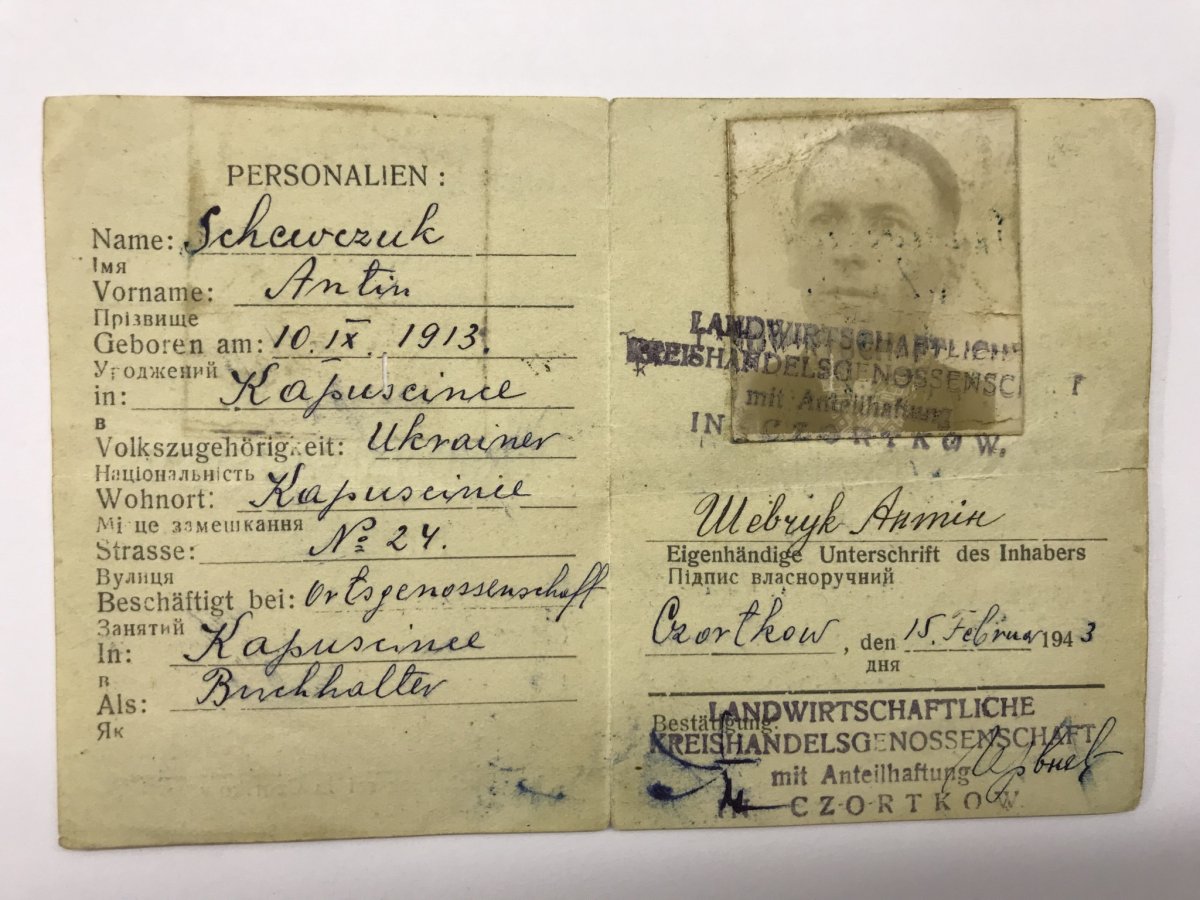 PERSONALIEN:
Name: Schewczuk
Імя
Vorname: Antin
Прізвище
Geboren am: 10. IX. 1913.
Уроджений
in: Kapuscince
в
Volkszugehörigkeit: Ukrainer
Національність
Wohnort: Kapuscince
Місце замешкання
Strasse: № 24.
Вулиця
Beschäftigt bei: Ortsgenossenschaft
Занятий
In: Kapuscince
в
Als: Buchhalter
Як
LANDWIRTSCHAFTLICHE
KREISHANDELSGENOSSENSC
mit Anteilhaftung
IN CZORTKOW.
Антін
Eigenhändige Unterschrift des Inhabers
Підпис власноручний
Czortkow, den 15. Februar 1943
дня
Bestätigung:
LANDWIRTSCHAFTLICHE
KREISHANDELSGENOSSENSCHAFT
mit Anteilhaftung
IN CZORTKOW